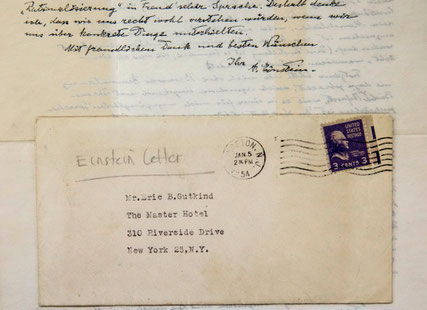 "Rationalisierung" in Freud'scher Sprache. Deshalb denke
ich, dass wir uns recht wohl verstehen würden, wenn wir
uns über konkrete Dinge unterhielten.
Mit freundlichem Dank und besten Wünschen
Ihr A. Einstein.
Einstein Letter
JAN 5
2 PM
1954
UNITED STATES
POSTAGE
3 CENTS 3
Mr. Eric B. Gutkind
The Master Hotel
310 Riverside Drive
New York 25, N.Y.